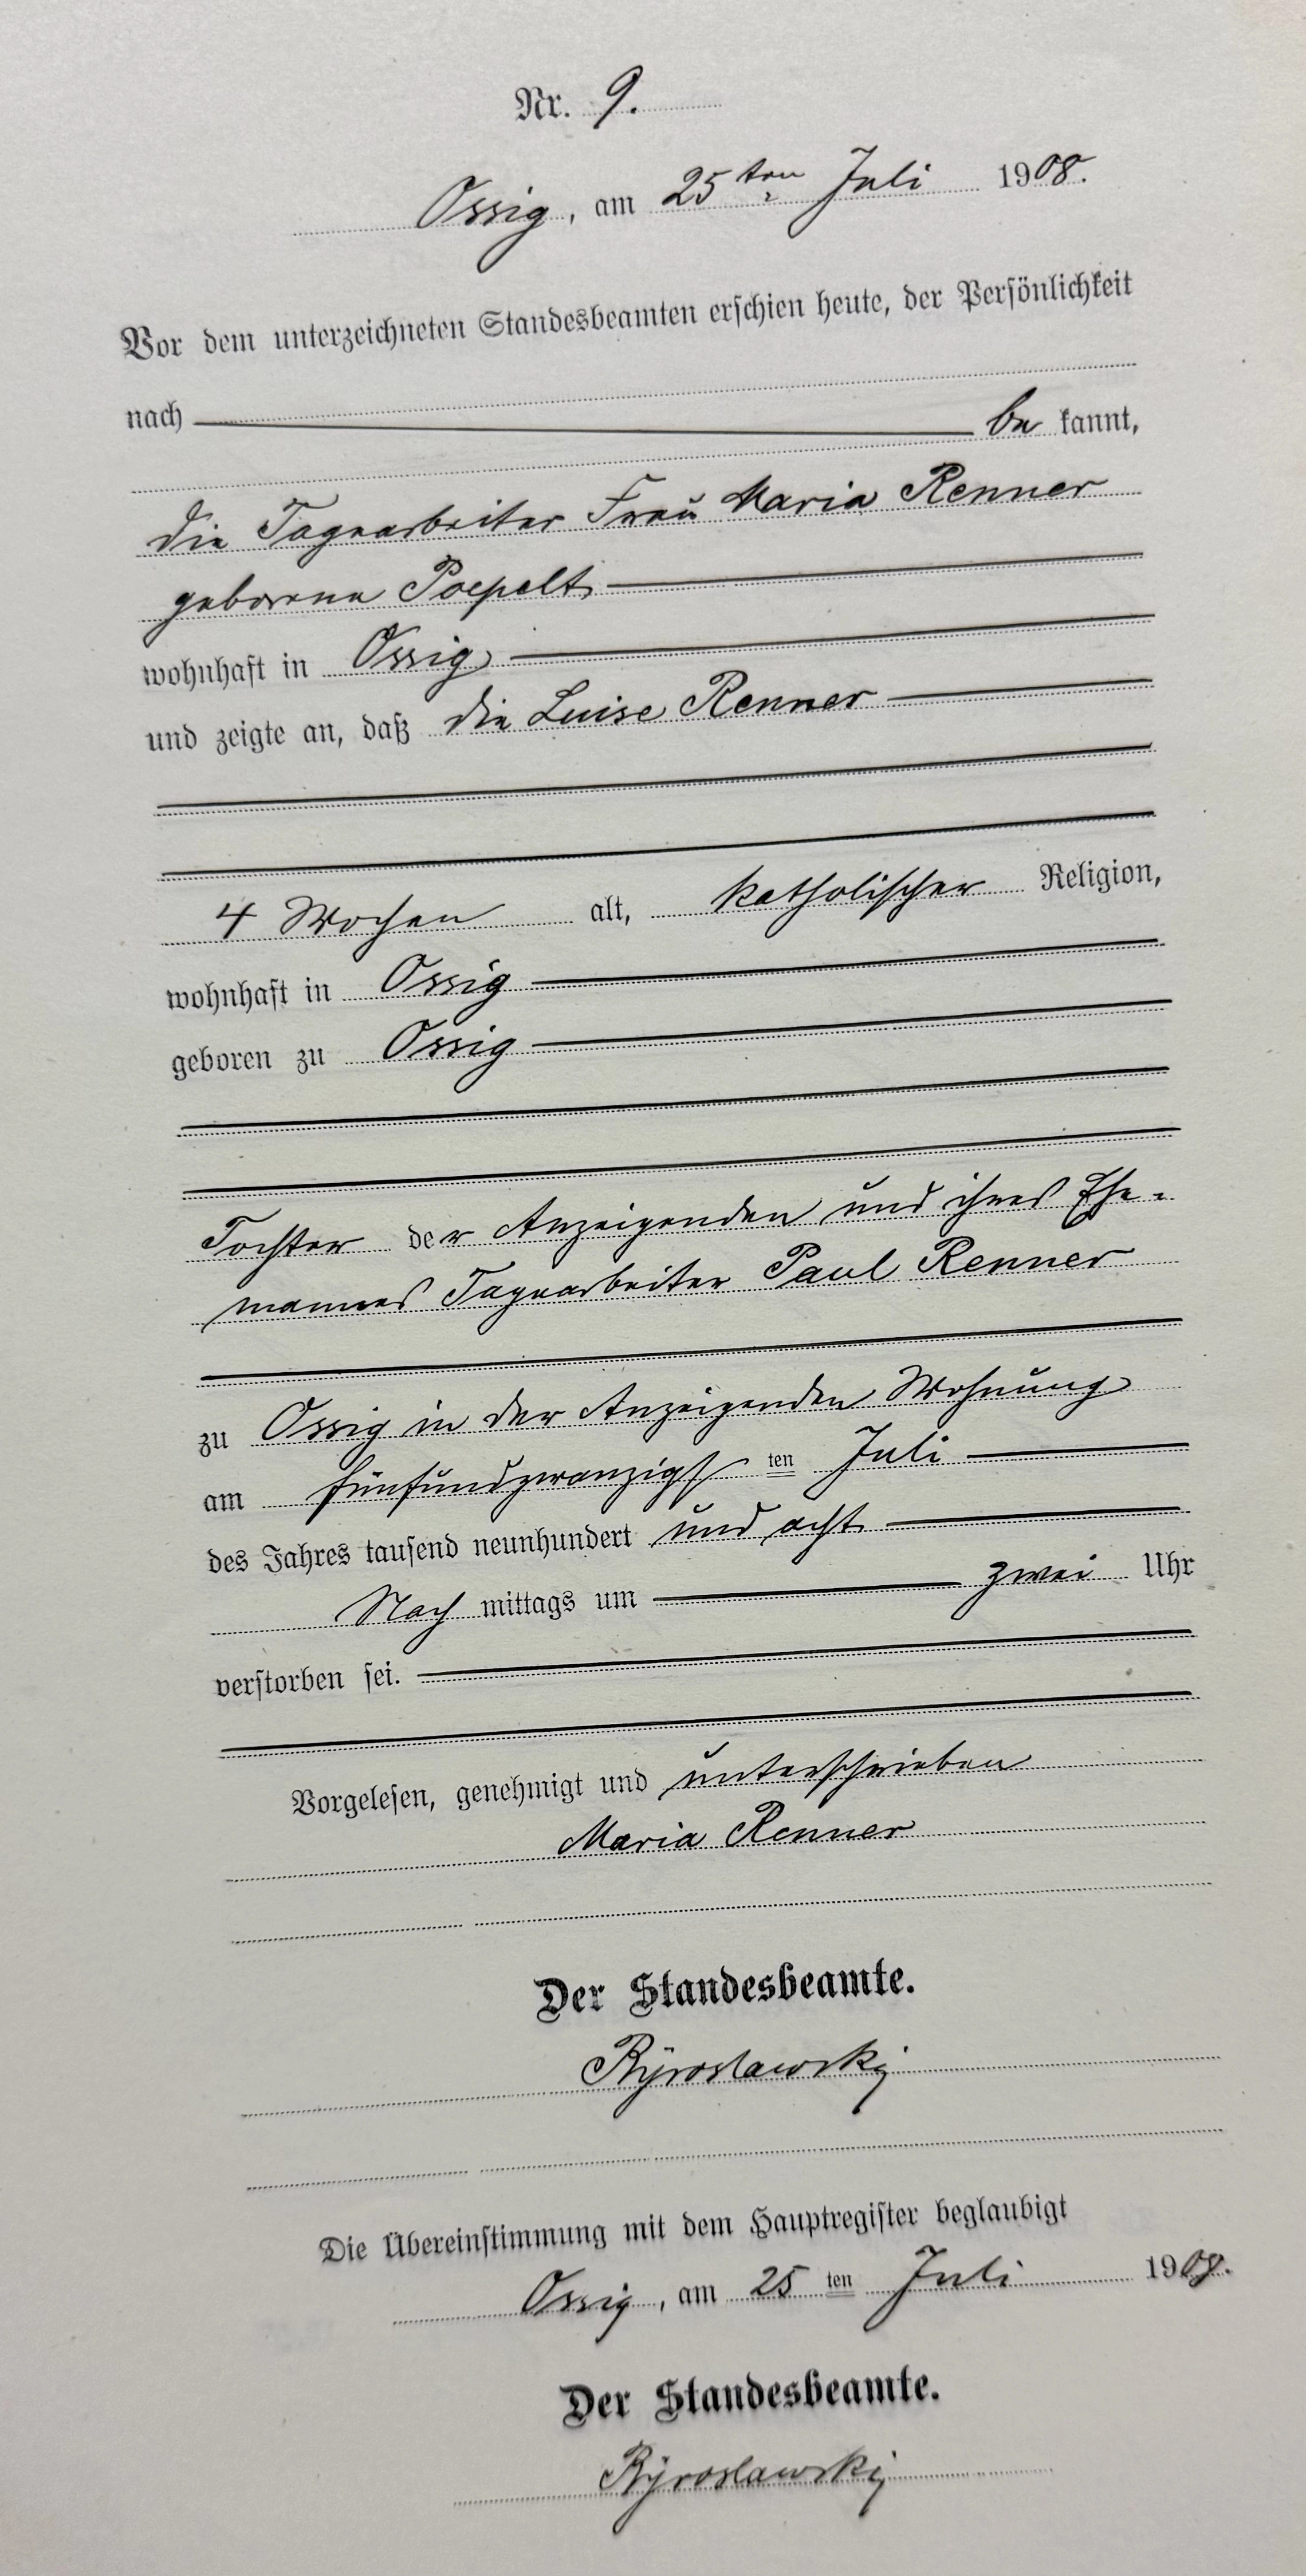 Nr. 9.
Ossig, am 25ten Juli 1908.
Vor dem unterzeichneten Standesbeamten erschien heute, der Persönlichkeit
nach be kannt,
die Tagearbeiter Frau Maria Renner
geborene Poepelt
wohnhaft in Ossig
und zeigte an, daß die Luise Renner
4 Wochen alt, katholischer Religion,
wohnhaft in Ossig
geboren zu Ossig
Tochter der Anzeigenden und ihres Ehe-
mannes Tagearbeiter Paul Renner
zu Ossig in der Anzeigenden Wohnung
am fünfundzwanzigsten Juli
des Jahres tausend neunhundert und acht
Nach mittags um zwei Uhr
verstorben sei.
Vorgelesen, genehmigt und unterschrieben
Maria Renner
Der Standesbeamte.
Ryroslawsky
Die Übereinstimmung mit dem Hauptregister beglaubigt
Ossig, am 25 ten Juli 1908.
Der Standesbeamte.
Ryroslawsky